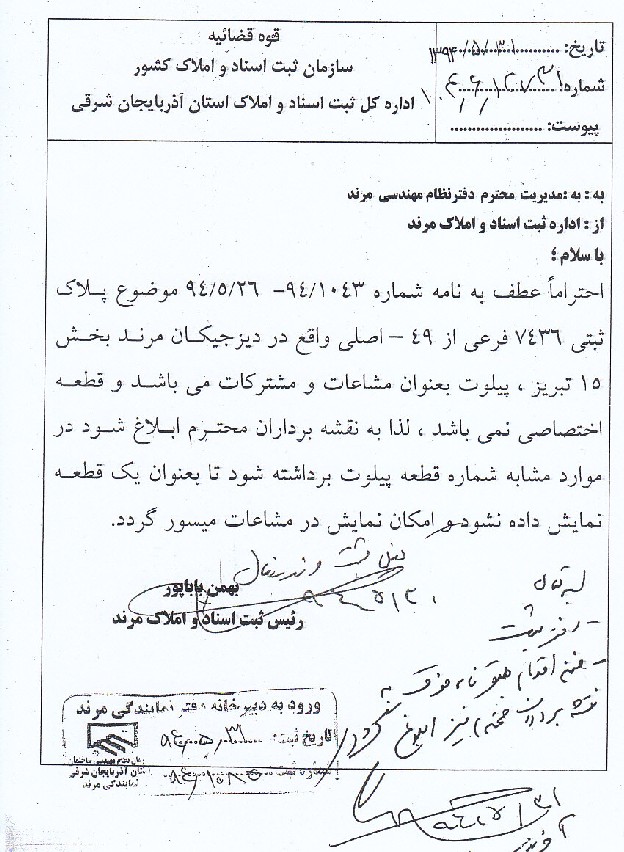 قوه قضائیه
سازمان ثبت اسناد و املاک کشور
اداره کل ثبت اسناد و املاک استان آذربایجان شرقی
تاریخ: ۱۳۹۴/۰۵/۳۱
شماره:
پیوست:
به : به :مدیریت محترم دفترنظام مهندسی مرند
از : اداره ثبت اسناد و املاک مرند
با سلام ؛
احتراماً عطف به نامه شماره ۹٤/۱۰٤۳- ۹٤/۵/۲٦ موضوع پلاک
ثبتی ۷٤۳٦ فرعی از ٤۹ – اصلی واقع در دیزجیکان مرند بخش
۱۵ تبریز ، پیلوت بعنوان مشاعات و مشترکات می باشد و قطعه
اختصاصی نمی باشد ، لذا به نقشه برداران محترم ابلاغ شود در
موارد مشابه شماره قطعه پیلوت برداشته شود تا بعنوان یک قطعه
نمایش داده نشود و امکان نمایش در مشاعات میسور گردد.
بهمن باباپور
رئیس ثبت اسناد و املاک مرند
- دفتر ثبت
- ضمن اقدام طبق نامه فوق به
نقشه برداران نیز ابلاغ گردد
ورود به دبیرخانه دفتر نمایندگی مرند
تاریخ ثبت:
سازمان نظام مهندسی ساختمان
استان آذربایجان شرقی
نمایندگی مرند